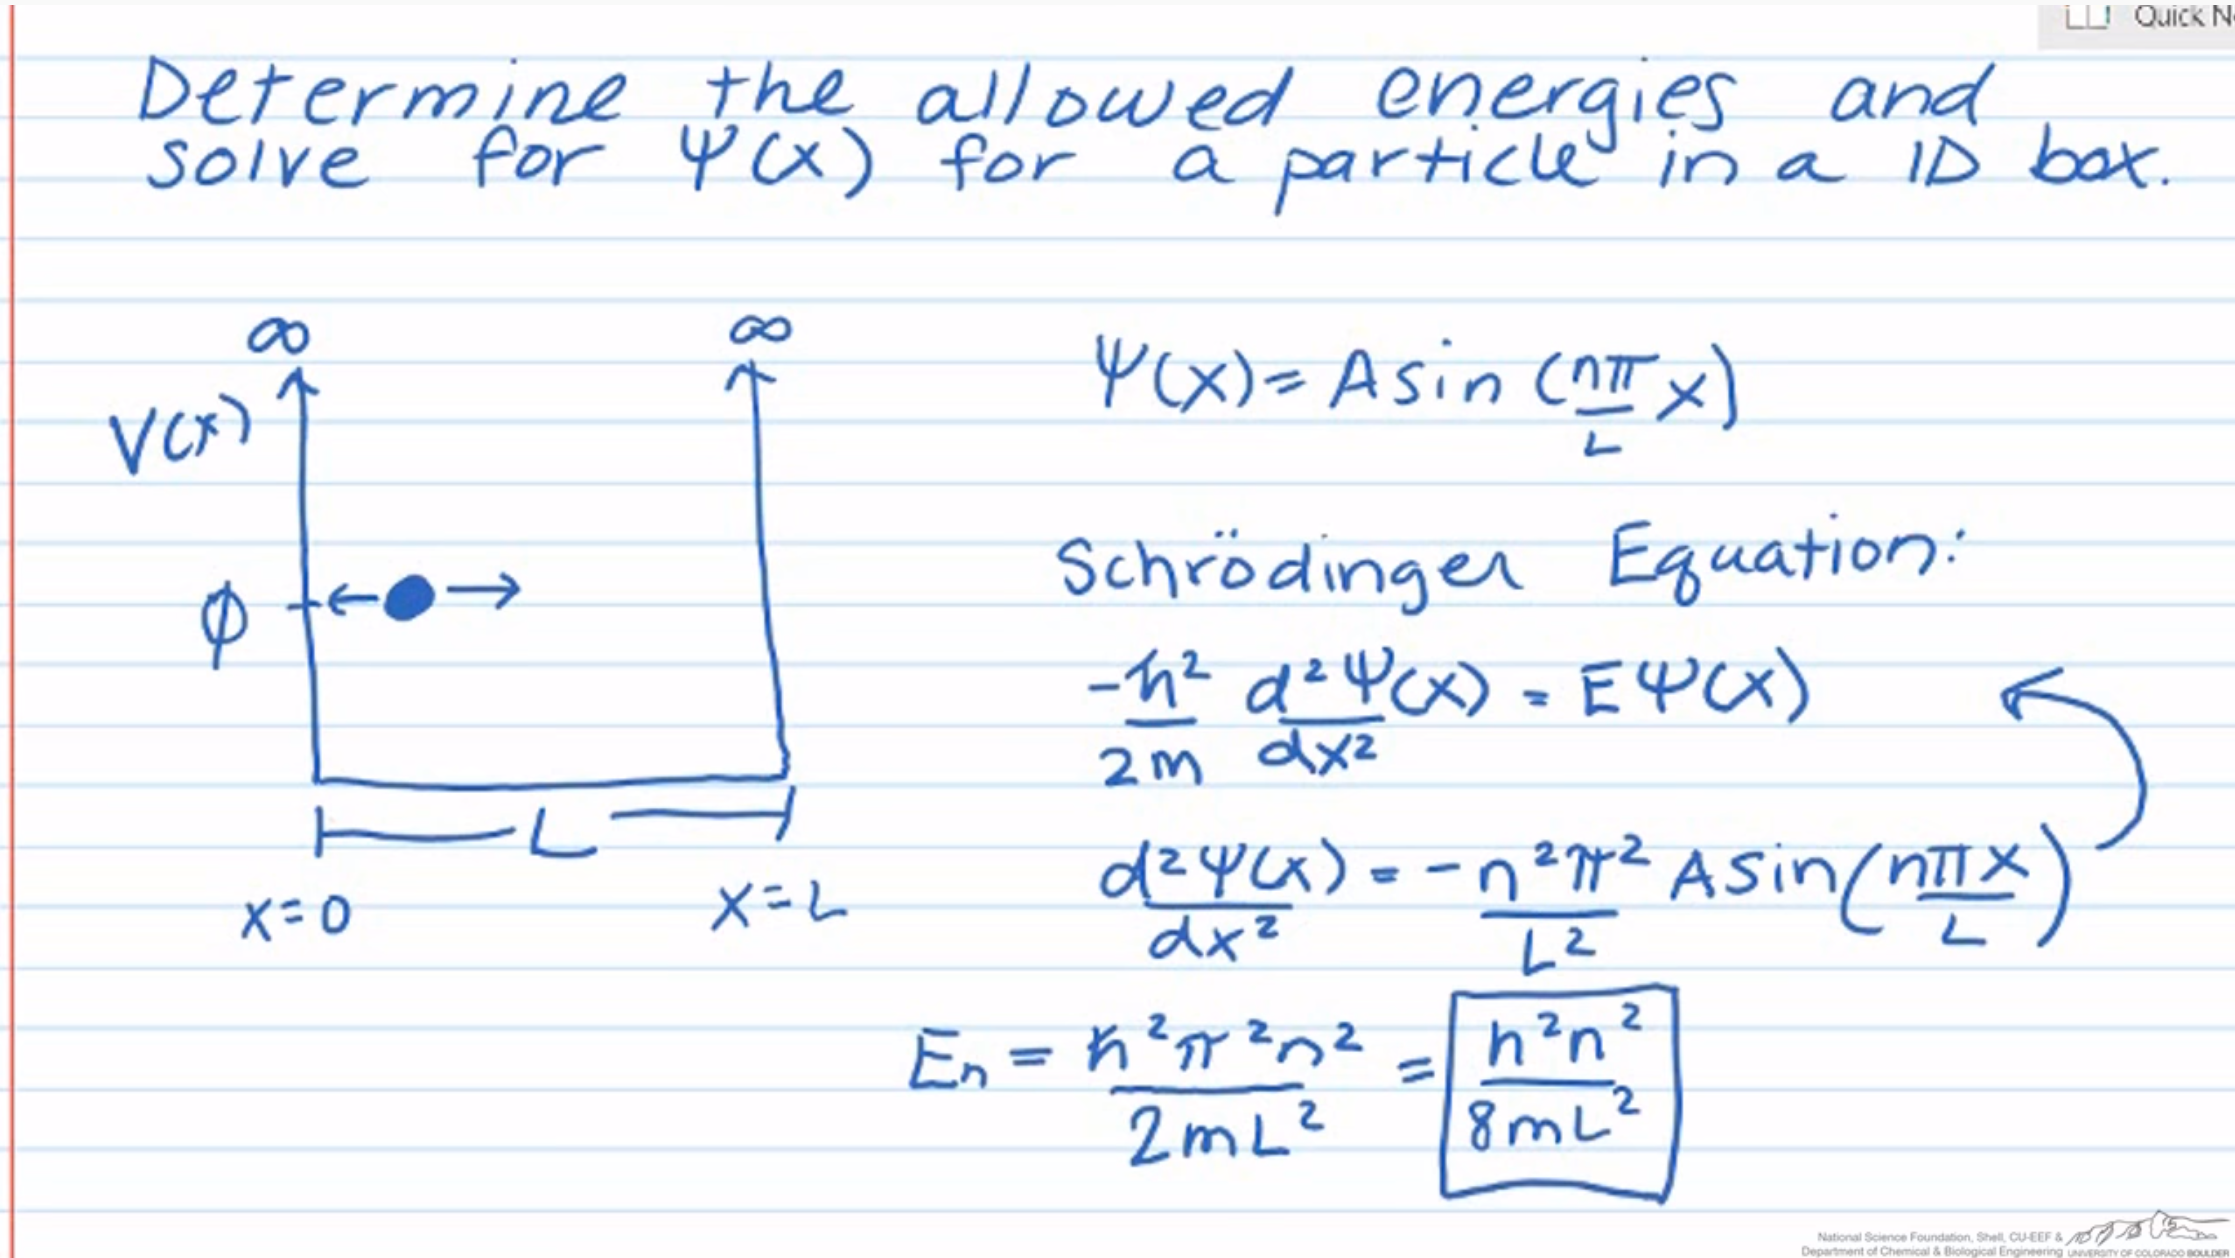 Quick N
Determine the allowed energies and
solve for Ψ(x) for a particle in a 1D box.
∞ ∞
V(x)
ϕ
L
x=0 x=L
Ψ(x)= A sin (nπ/L x)
Schrödinger Equation:
-ħ²/2m d²Ψ(x)/dx² = EΨ(x)
d²Ψ(x)/dx² = -n²π²/L² A sin(nπx/L)
En = ħ²π²n²/2mL² = h²n²/8mL²
National Science Foundation, Shell, CU-EEF &
Department of Chemical & Biological Engineering UNIVERSITY OF COLORADO BOULDER